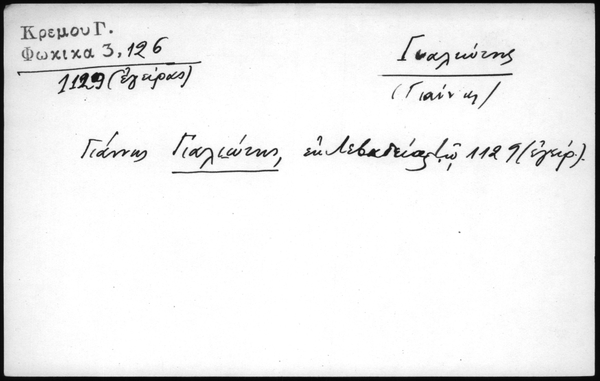 Κρεμου Γ.
Φωκικα 3, 126
1129 (ἐγείρας)
Γιαλιώτης
(Γιάννης)
Γιάννης Γιαλιώτης, ἐκ Λεβαδείας τῷ 1129 (ἐγείρ.).